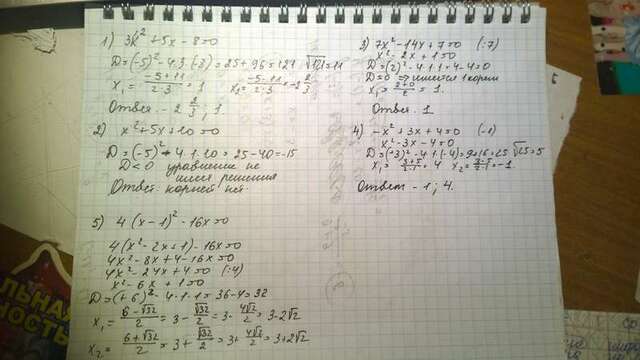 1) 3x² + 5x - 8 = 0
D = (-5)² - 4·3·(-8) = 25 + 96 = 121 √121 = 11
x₁ = (-5+11)/(2·3) = 1 x₂ = (-5-11)/(2·3) = -2 2/3
Ответ. -2 2/3; 1.
2) x² + 5x + 10 = 0
D = (-5)² - 4·1·10 = 25 - 40 = -15
D < 0 уравнение не
имеет решения
Ответ: корней нет.
3) 7x² - 14x + 7 = 0 (:7)
x² - 2x + 1 = 0
D = (2)² - 4·1·1 = 4 - 4 = 0
D = 0 ⇒ имеется 1 корень
x₁ = (2+0)/2 = 1.
Ответ. 1
4) -x² + 3x + 4 = 0 (-1)
x² - 3x - 4 = 0
D = (+3)² - 4·1·(-4) = 9 + 16 = 25 √25 = 5
x₁ = (3+5)/(2·1) = 4 x₂ = (3-5)/(2·1) = -1.
Ответ -1; 4.
5) 4(x-1)² - 16x = 0
4(x² - 2x + 1) - 16x = 0
4x² - 8x + 4 - 16x = 0
4x² - 24x + 4 = 0 (:4)
x² - 6x + 1 = 0
D = (+6)² - 4·1·1 = 36 - 4 = 32
x₁ = (6-√32)/2 = 3 - √32/2 = 3 - 4√2/2 = 3 - 2√2
x₂ = (6+√32)/2 = 3 + √32/2 = 3 + 4√2/2 = 3 + 2√2